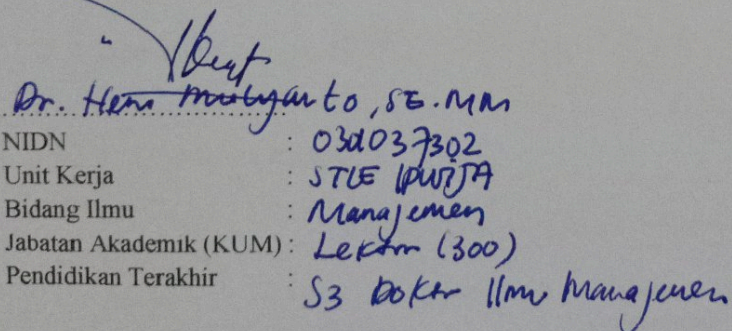 Dr. Heni Mulyanto, SE. MM
NIDN :
Unit Kerja : STIE IPWIJA
Bidang Ilmu : Manajemen
Jabatan Akademik (KUM) : Lektor (300)
Pendidikan Terakhir : S3 Doktor Ilmu Manajemen